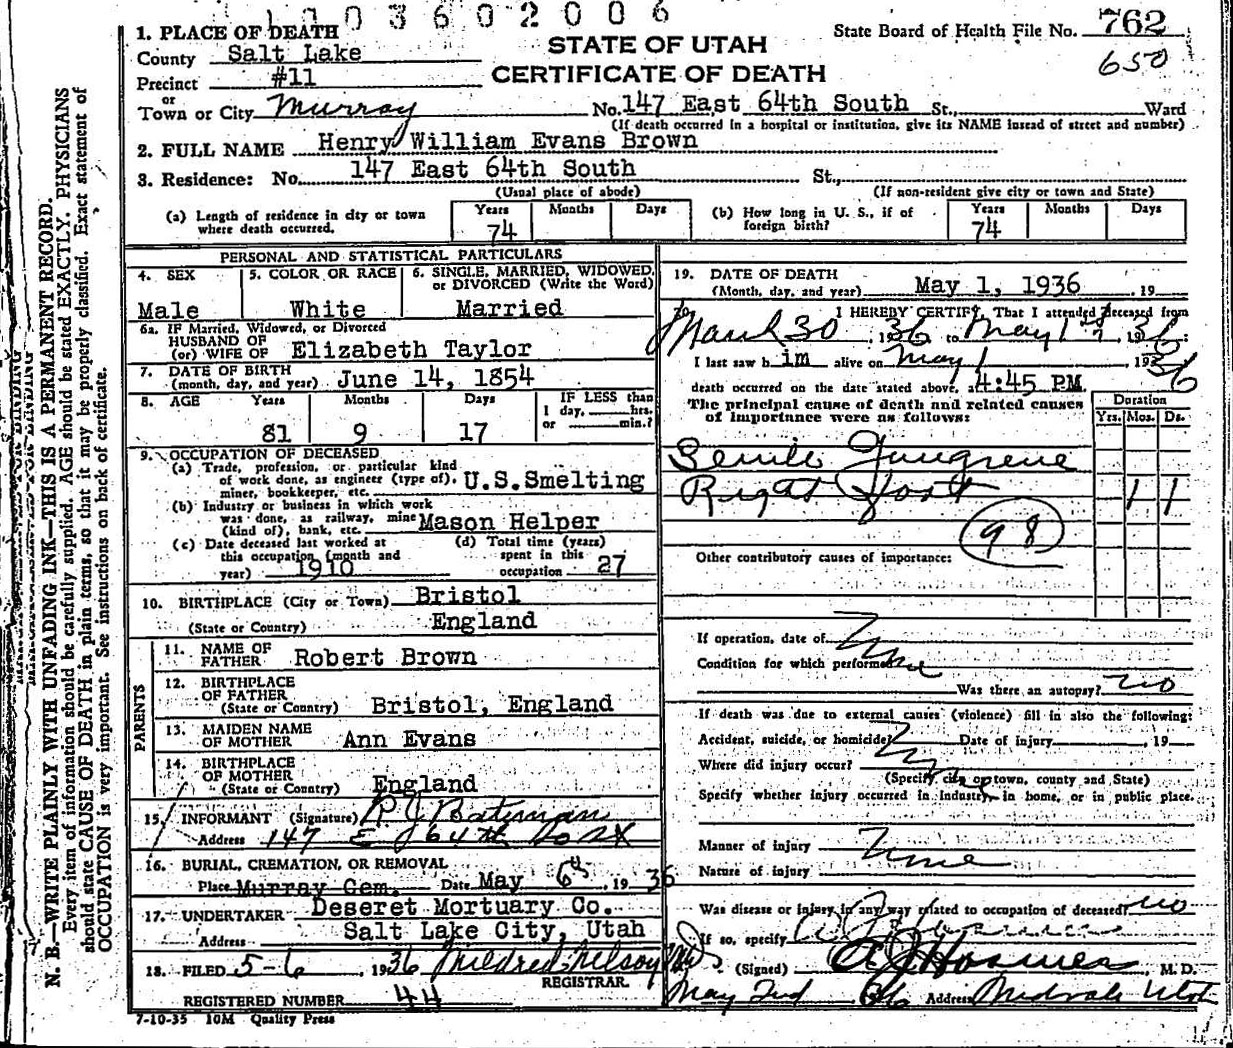 1003602006
1. PLACE OF DEATH
County Salt Lake
Precinct #11
or
Town or City Murray
STATE OF UTAH
CERTIFICATE OF DEATH
State Board of Health File No. 762
650
No. 147 East 64th South St., Ward
(If death occurred in a hospital or institution, give its NAME instead of street and number)
2. FULL NAME Henry William Evans Brown
3. Residence: No. 147 East 64th South St.,
(Usual place of abode) (If non-resident give city or town and State)
(a) Length of residence in city or town where death occurred. Years 74 Months Days
(b) How long in U. S., if of foreign birth? Years 74 Months Days
PERSONAL AND STATISTICAL PARTICULARS
4. SEX Male
5. COLOR OR RACE White
6. SINGLE, MARRIED, WIDOWED, or DIVORCED (Write the Word) Married
6a. IF Married, Widowed, or Divorced
HUSBAND OF
(or) WIFE OF Elizabeth Taylor
7. DATE OF BIRTH
(month, day, and year) June 14, 1854
8. AGE Years 81 Months 9 Days 17
IF LESS than
1 day, hrs.
or min.?
9. OCCUPATION OF DECEASED
(a) Trade, profession, or particular kind
of work done, as engineer (type of),
miner, bookkeeper, etc. U.S.Smelting
(b) Industry or business in which work
was done, as railway, mine
(kind of), bank, etc. Mason Helper
(c) Date deceased last worked at
this occupation (month and
year) 1910
(d) Total time (years)
spent in this
occupation 27
10. BIRTHPLACE (City or Town) Bristol
(State or Country) England
PARENTS
11. NAME OF
FATHER Robert Brown
12. BIRTHPLACE
OF FATHER
(State or Country) Bristol, England
13. MAIDEN NAME
OF MOTHER Ann Evans
14. BIRTHPLACE
OF MOTHER
(State or Country) England
15. INFORMANT (Signature) R J Bateman
Address 147 E 64th So SLX
16. BURIAL, CREMATION, OR REMOVAL
Place Murray Cem. Date May 6th, 1936
17. UNDERTAKER Deseret Mortuary Co.
Address Salt Lake City, Utah
18. FILED 5-6, 1936 Mildred Nelson
REGISTRAR.
REGISTERED NUMBER 44
7-10-35 10M Quality Press
19. DATE OF DEATH
(Month, day, and year) May 1, 1936, 19
20. I HEREBY CERTIFY, That I attended deceased from
March 30, 1936 to May 1st, 1936
I last saw h im alive on May 1 1936
death occurred on the date stated above, at 4:45 PM
The principal cause of death and related causes
of importance were as follows:
Duration
Yrs. Mos. Ds.
Senile Gangrene
Right Foot 1 1
98
Other contributory causes of importance:
If operation, date of None
Condition for which performed
Was there an autopsy? no
If death was due to external causes (violence) fill in also the following:
Accident, suicide, or homicide? Date of injury, 19
Where did injury occur?
(Specify city or town, county and State)
Specify whether injury occurred in Industry, in home, or in public place.
Manner of injury None
Nature of injury
Was disease or injury in any way related to occupation of deceased? no
If so, specify
(Signed) M. D.
May 2nd 36 Address Midvale Utah
N. B.—WRITE PLAINLY WITH UNFADING INK—THIS IS A PERMANENT RECORD.
Every item of information should be carefully supplied. AGE should be stated EXACTLY. PHYSICIANS
should state CAUSE OF DEATH in plain terms, so that it may be properly classified. Exact statement of
OCCUPATION is very important. See instructions on back of certificate.